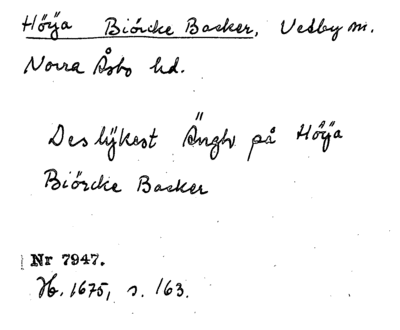 Höÿa Biörcke Backer, Vedby sn.
Norra Åsbo hd.
Des lÿkest Ängh på Höÿa
Biörcke Backer
Nr 7947.
Jb. 1675, s. 163.